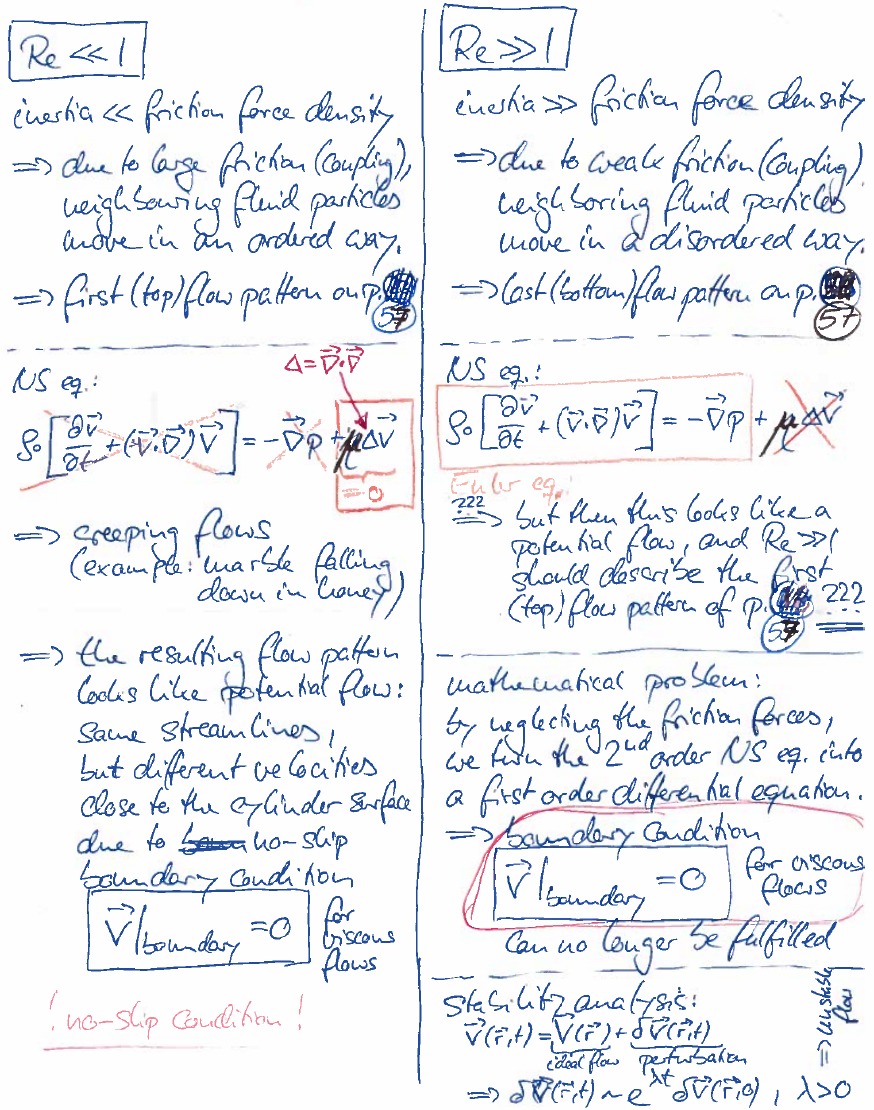 Re << 1
inertia << friction force density
=> due to large friction (coupling),
neighbouring fluid particles
move in an ordered way.
=> first (top) flow pattern on p.
57
NS eq.:
Δ = ∇⃗·∇⃗
ρ₀ [∂v⃗/∂t + (v⃗·∇⃗)v⃗] = -∇⃗p + μΔv⃗
= 0
=> creeping flows
(example: marble falling
down in honey)
=> the resulting flow pattern
looks like potential flow:
same streamlines,
but different velocities
close to the cylinder surface
due to no-slip
boundary condition
v⃗|boundary = 0
for
viscous
flows
! no-slip condition !
Re >> 1
inertia >> friction force density
=> due to weak friction (coupling)
neighboring fluid particles
move in a disordered way.
=> last (bottom) flow pattern on p.
57
NS eq.:
ρ₀ [∂v⃗/∂t + (v⃗·∇⃗)v⃗] = -∇⃗p + μΔv⃗
Euler eq.:
???
=> but then this looks like a
potential flow, and Re >> 1
should describe the first
(top) flow pattern of p. ???
57
mathematical problem:
by neglecting the friction forces,
we turn the 2nd order NS eq. into
a first order differential equation.
=> boundary condition
v⃗|boundary = 0
for viscous
flows
can no longer be fulfilled
Stability analysis:
v⃗(r⃗,t) = v⃗(r⃗) + δv⃗(r⃗,t)
ideal flow perturbation
=> δv⃗(r⃗,t) ~ e^λt δv⃗(r⃗,0) , λ>0
=> unstable
flow